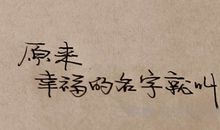 原来
幸福的名字就叫